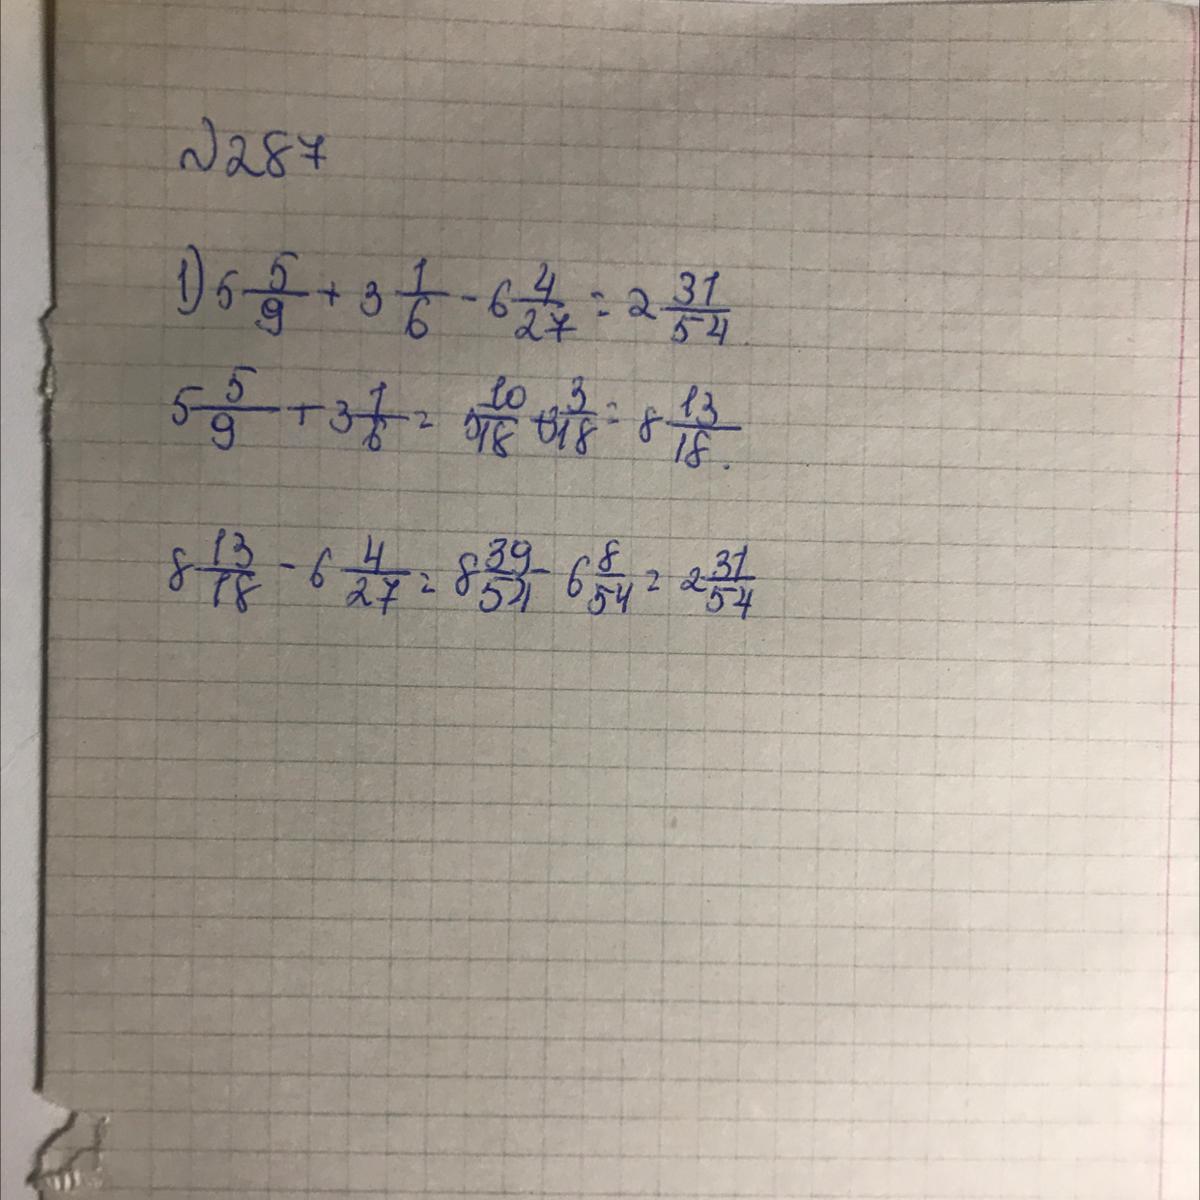 №287
1) 5 5/9 + 3 1/6 - 6 4/27 = 2 31/54
5 5/9 + 3 1/6 = 5 10/18 + 3 3/18 = 8 13/18.
8 13/18 - 6 4/27 = 8 39/54 - 6 8/54 = 2 31/54